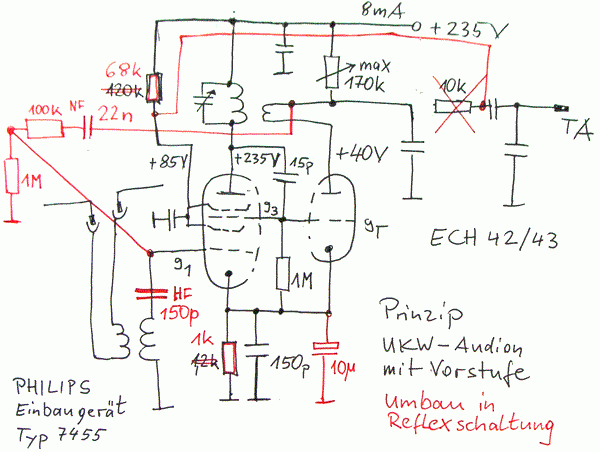 8mA
+235V
68k
120k
max
170k
10k
TA
100k
NF
22n
1M
+85V
+235V
15p
+40V
g3
gT
ECH 42/43
g1
1M
HF
150p
1k
1,2k
150p
10µ
Prinzip
UKW-Audion
mit Vorstufe
Umbau in
Reflexschaltung
PHILIPS
Einbaugerät
Typ 7455